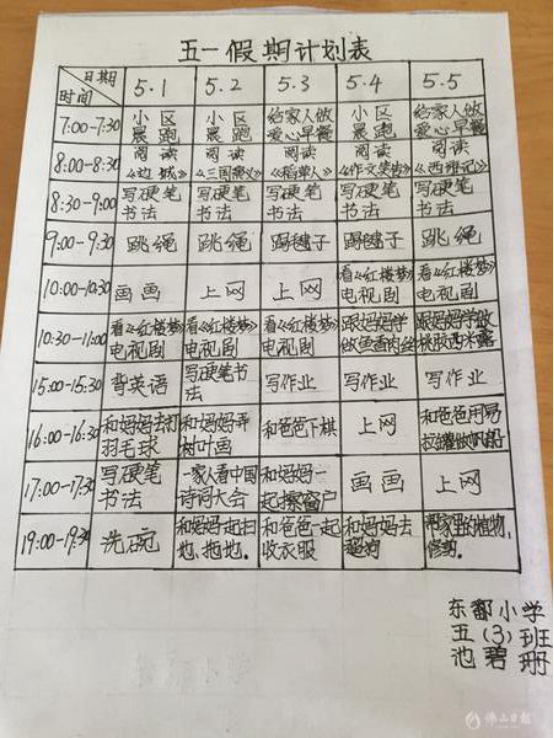 五一假期计划表
日期 时间 5.1 5.2 5.3 5.4 5.5
7:00-7:30 小区晨跑 小区晨跑 给家人做爱心早餐 小区晨跑 给家人做爱心早餐
8:00-8:30 阅读《边城》 阅读《三国演义》 阅读《稻草人》 阅读 阅读《西游记》
8:30-9:00 写硬笔书法 写硬笔书法 写硬笔书法 写硬笔书法 写硬笔书法
9:00-9:30 跳绳 跳绳 踢毽子 踢毽子 跳绳
10:00-10:30 画画 上网 上网 看《红楼梦》电视剧 看《红楼梦》电视剧
10:30-11:00 看《红楼梦》电视剧 看《红楼梦》电视剧 看《红楼梦》电视剧 跟妈妈学做鱼香肉丝 跟妈妈学做桃胶西米露
15:00-15:30 背英语 写硬笔书法 写作业 写作业 写作业
16:00-16:30 和妈妈去打羽毛球 和妈妈弄树叶画 和爸爸下棋 上网 和爸爸用易拉罐做帆船
17:00-17:30 写硬笔书法 一家人看中国诗词大会 和妈妈一起擦窗户 画画 上网
19:00-19:30 洗碗 和妈妈一起扫地、拖地。 和爸爸一起收衣服 和妈妈去遛狗 帮家里的植物修剪。
东鄱小学
五(3)班
池碧珊
佛山日报